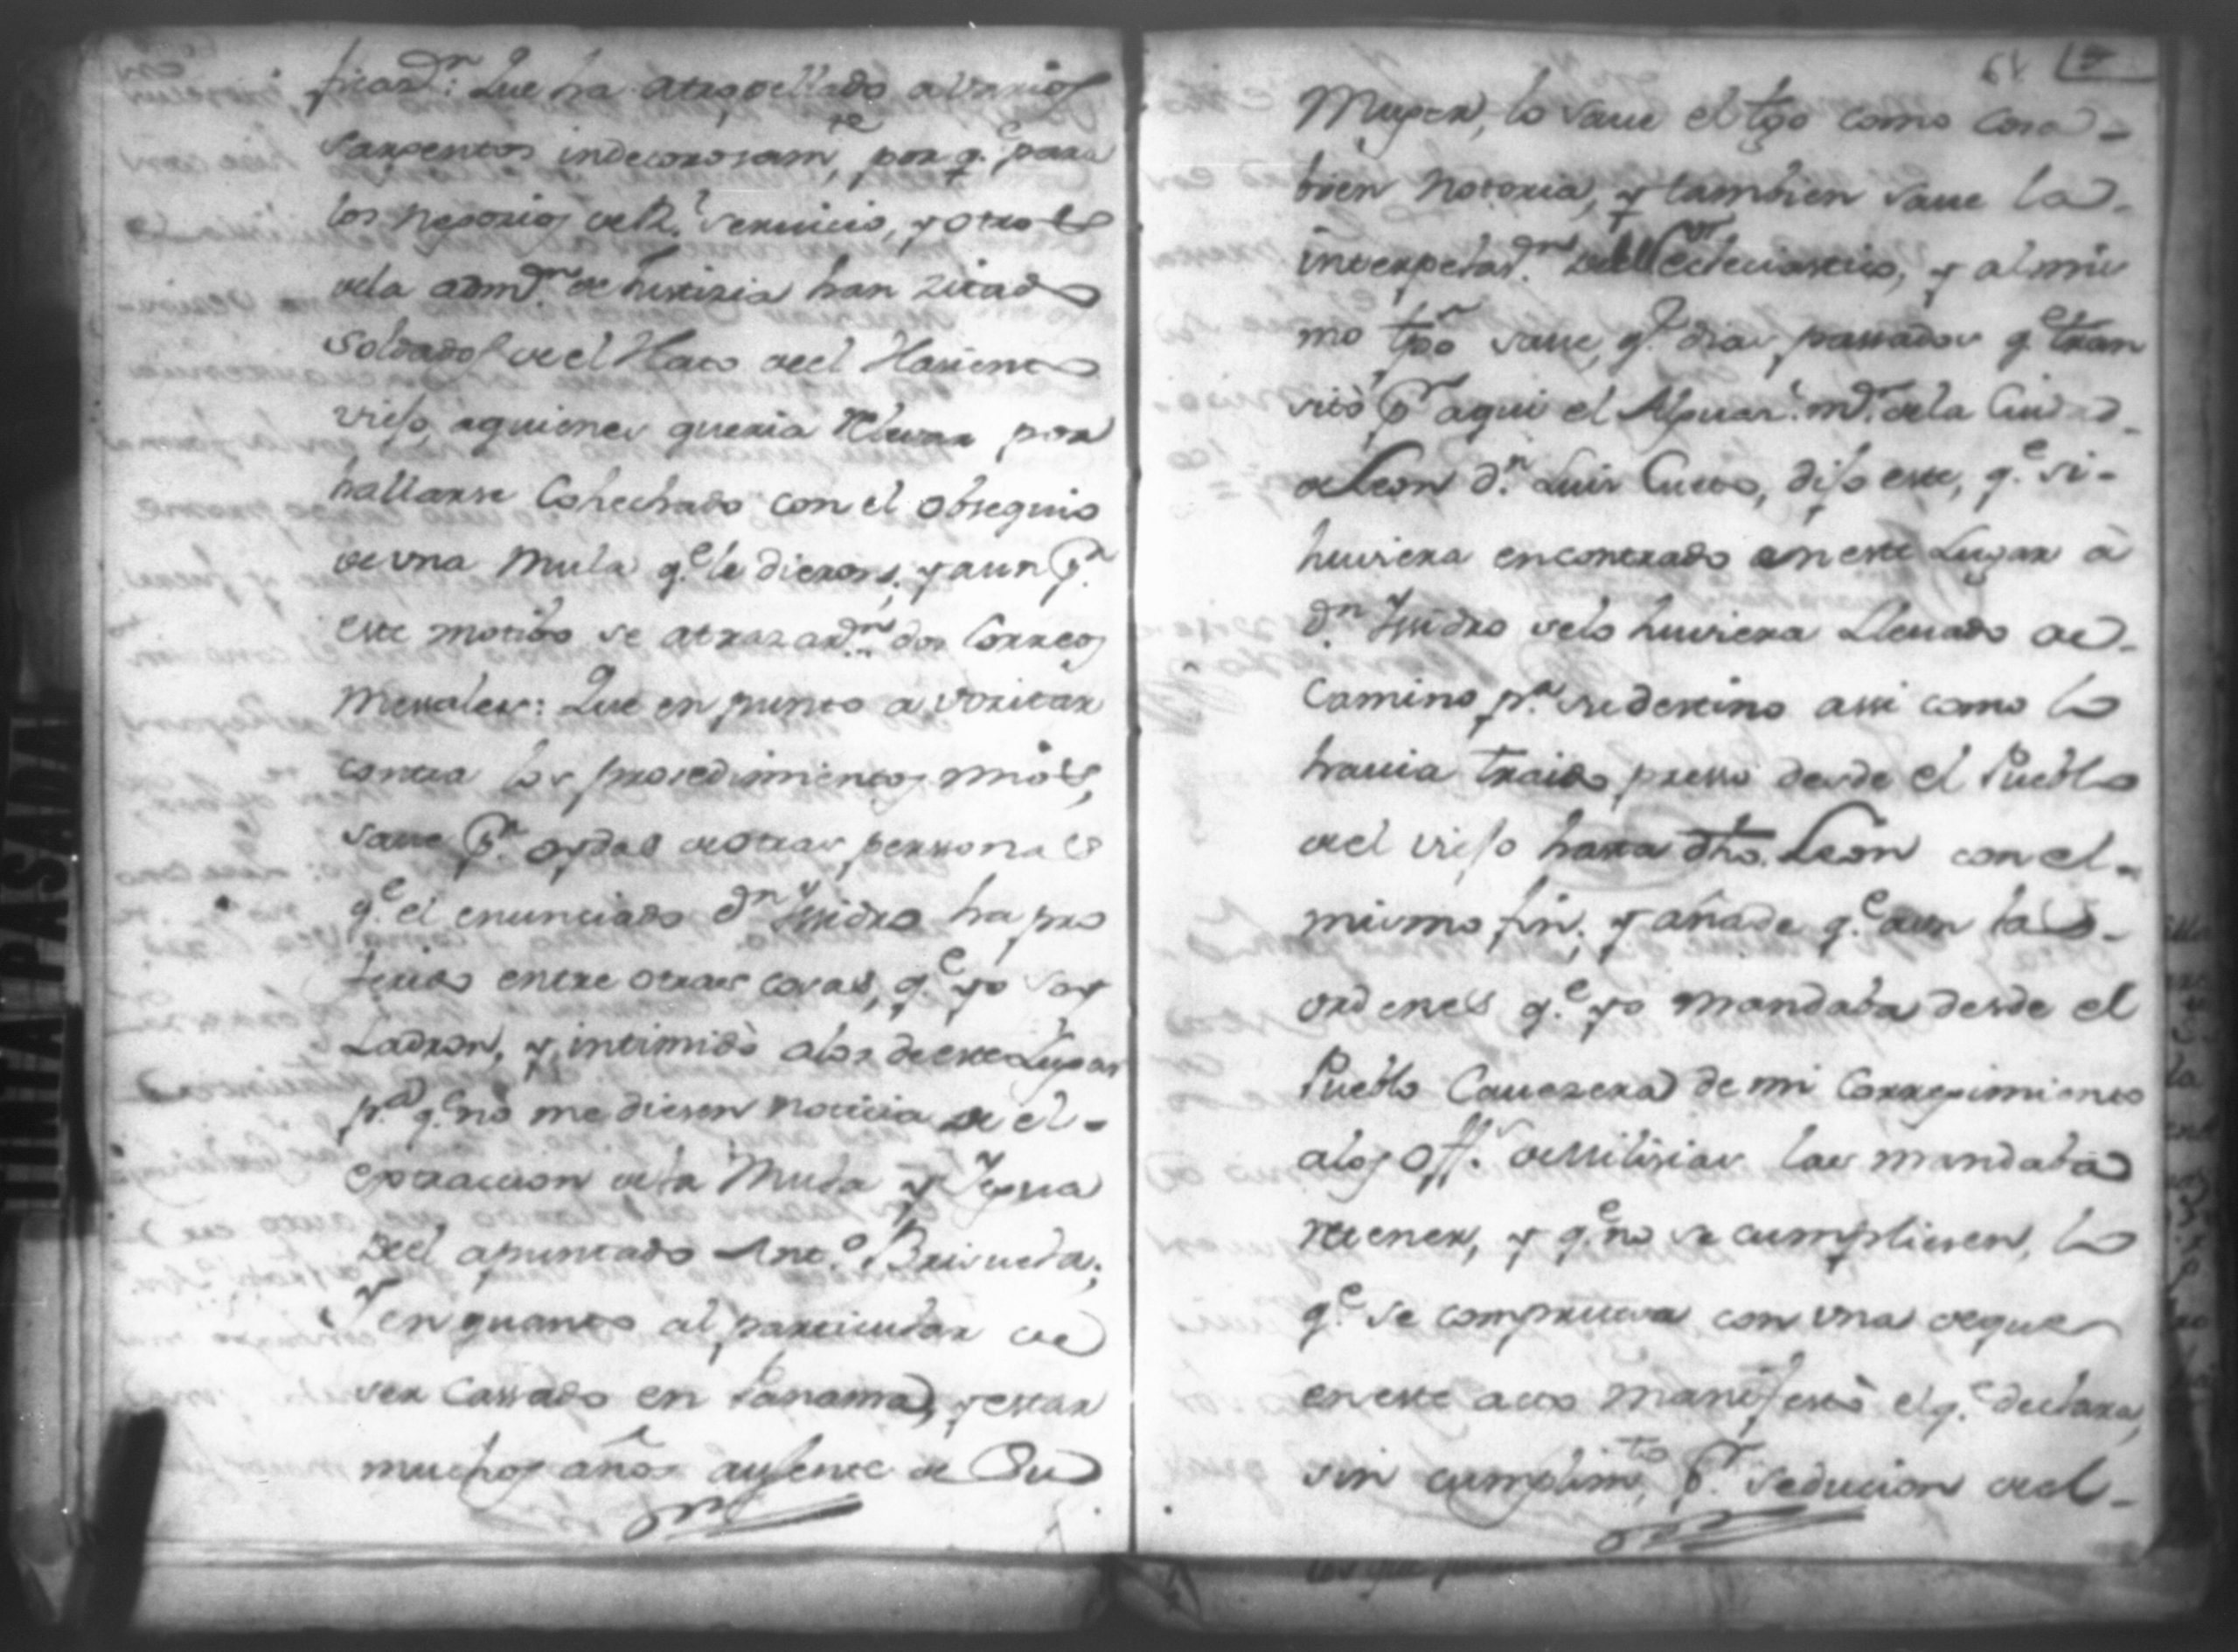 ficasn.: Que ha atropellado a barios
Sargentos indecorosamte, por q.e para
los negosios de R.l servicio, y otros
de la admon. de Justizia han zitado
Soldados de el Hato de el Hasiento
viejo, a quienes queria relevar por
hallarse Cohechado con el obsequio
de vna Mula q.e le dieron; y aun p.r
este motibo se atrazaron dos Correos
Mensales: Que en punto a voritar
contra los prosedimientos mios,
save p.r oydas de otras perssonas
q.e el enunciado Dn Ysidro ha pro
ferido entre otras cosas, q.e yo soy
Ladron, y intimidò a los de este Lugar
p.a q.e no me diesen noticia de el-
extraccion de la Mula y Yegua
del apuntado Ant.o Brisueda;
Y en quanto al particular de
ser Cassado en Panama, y estar
muchos años ausente de Su
19
Muger, lo save el tgo como cosa-
bien notoria, y tambien save la-
interpetasn. del Eclesiastico, y al mis
mo tpo save, q.e dias passados q.e tran
sitò p.r aqui el Alguasl. mr. de la Ciudad-
de Leon Dn. Luis Cueto, dijo este, q.e si-
huviera encontrado en este Lugar à
Dn Ysidro selo huviera Llevado de-
Camino p.a su destino assi como lo
havia traido presso desde el Pueblo
del viejo hasta dho. Leon con el-
mismo fin; y añade q.e aun las-
ordenes q.e yo mandaba desde el
Pueblo Cavezera de mi Corregimiento
a los Offs. de Milisias las mandaba
retener, y q.e no se cumpliesen, lo
q.e se comprueva con vna de que
en este acto manifestò el q.e declara,
sin cumplimto, p.r seducion del-